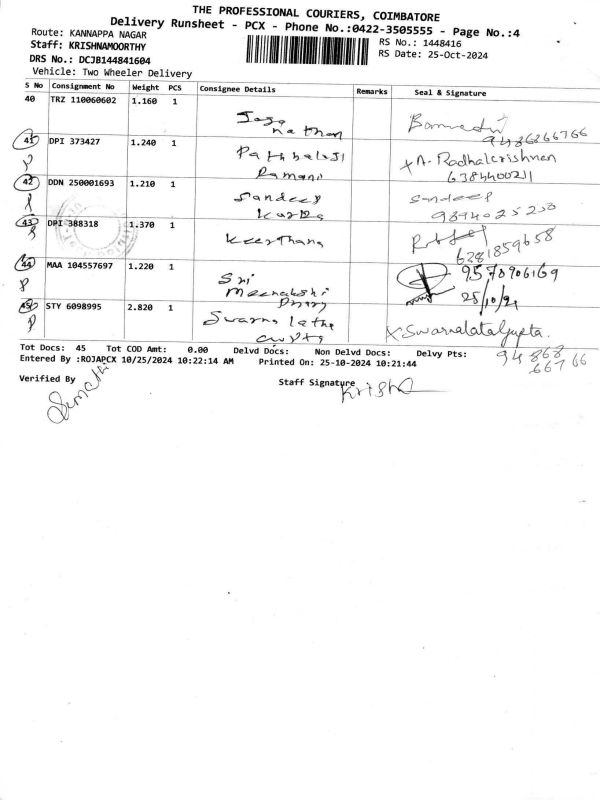 THE PROFESSIONAL COURIERS, COIMBATORE
Delivery Runsheet - PCX - Phone No.:0422-3505555 - Page No.:4
Route: KANNAPPA NAGAR
RS No.: 1448416
Staff: KRISHNAMOORTHY
RS Date: 25-Oct-2024
DRS No.: DCJB144841604
Vehicle: Two Wheeler Delivery
S No Consignment No Weight PCS Consignee Details Remarks Seal & Signature
40 TRZ 110060602 1.160 1
Jaga
nathan
9486266766
41 DPI 373427 1.240 1
Ramani
A. Radhakrishnan
6384400211
42 DDN 250001693 1.210 1
Sandeep
Sandeep
9894025250
43 DPI 388318 1.370 1
Keerthana
6281859658
44 MAA 104557697 1.220 1
Sri
Meenakshi
9578906169
25/10/24
45 STY 6098995 2.820 1
Swarna latha
Gupta
X Swarnalata Gupta.
94868
66766
Tot Docs: 45 Tot COD Amt: 0.00 Delvd Docs: Non Delvd Docs: Delvy Pts:
Entered By :ROJAPCX 10/25/2024 10:22:14 AM Printed On: 25-10-2024 10:21:44
Verified By
Staff Signature